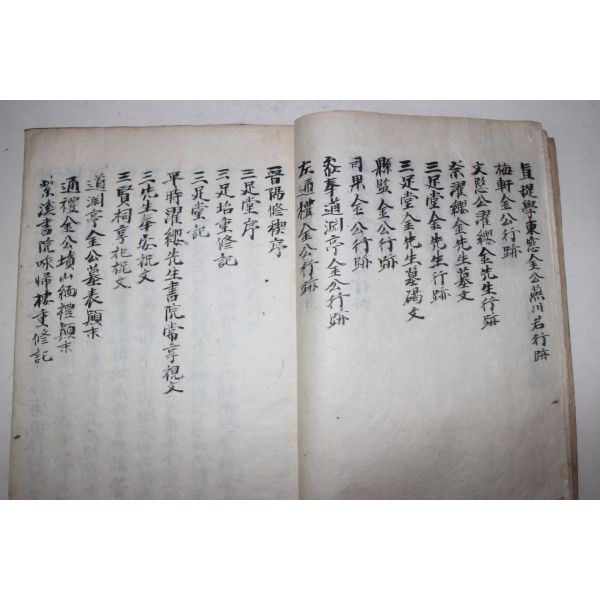 直提學東窓金公燕川君行跡
梅軒金公行跡
文愍公濯纓金先生行跡
祭濯纓金先生墓文
三足堂金先生行跡
三足堂金先生墓碣文
縣監金公行跡
司果金公行跡
參奉道淵亭金公行跡
左通禮金公行跡
晉陽修禊序
三足堂序
三足坮重修記
三足堂記
平時濯纓先生書院常享祝文
三先生奉安祝文
三賢祠享祀祝文
道淵亭金公墓表顚末
通禮金公墳山緬禮顚末
紫溪書院咏歸樓重修記